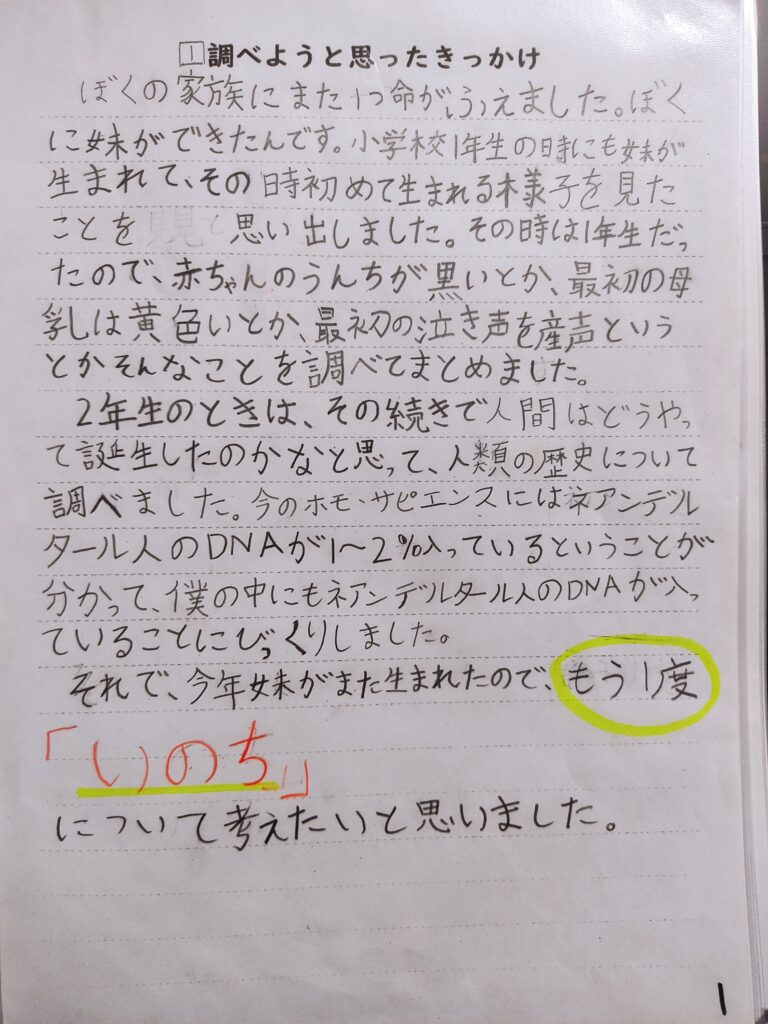 1調べようと思ったきっかけ
ぼくの家族にまた1つ命がふえました。ぼく
に妹ができたんです。小学校1年生の時にも妹が
生まれて、その時初めて生まれる様子を見た
ことを思い出しました。その時は1年生だっ
たので、赤ちゃんのうんちが黒いとか、最初の母
乳は黄色いとか、最初の泣き声を産声という
とかそんなことを調べてまとめました。
2年生のときは、その続きで人間はどうやっ
て誕生したのかなと思って、人類の歴史について
調べました。今のホモ・サピエンスにはネアンデル
タール人のDNAが1〜2%入っているということが
分かって、僕の中にもネアンデルタール人のDNAが入っ
ていることにびっくりしました。
それで、今年妹がまた生まれたので、もう1度
「いのち」
について考えたいと思いました。
1